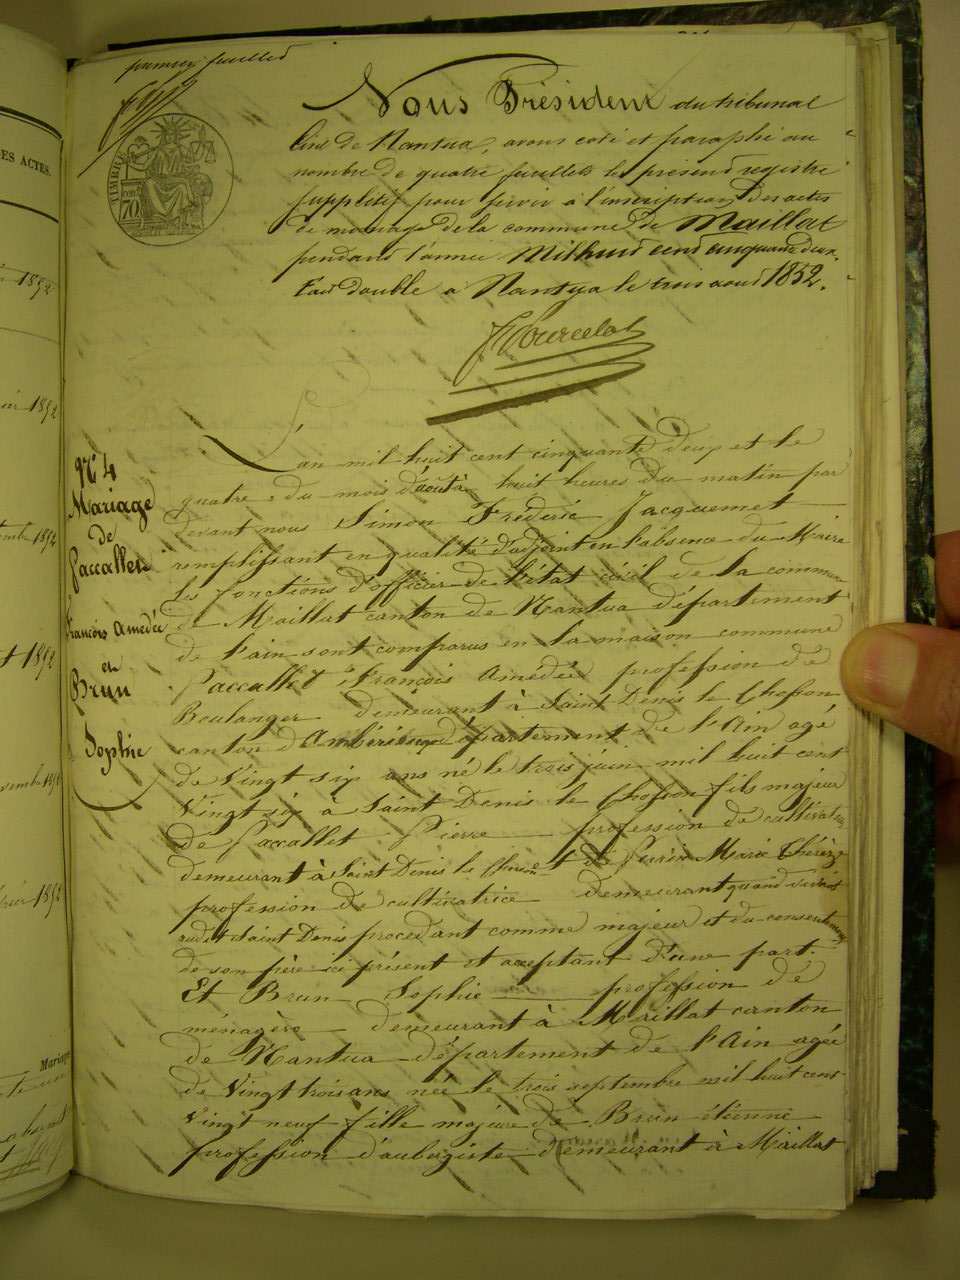 premier feuillet
TIMBRE
70
Nous Président du tribunal
Civil de Nantua, avons coté et paraphé au
nombre de quatre feuillets le présent registre
supplétif pour servir à l'inscription des actes
de mariage de la commune de Maillat
pendant l'année Mil huit cent cinquante deux.
fait double a Nantua le trois aout 1852.
N° 4
Mariage
de
Paccallet
François Amedée
et
Brun
Sophie
L'an mil huit cent cinquante deux et le
quatre du mois d'août à huit heures du matin par
devant nous Simon Fréderic Jacquemet
remplissant en qualité d'adjoint en l'absence du Maire
les fonctions d'officier de l'état civil de la commune
de Maillat canton de Nantua département
de l'ain sont comparus en la maison commune
Paccallet François Amédée profession de
Boulanger demeurant à Saint Denis le Chosson
canton d'Ambérieux département de l'Ain agé
de vingt six ans né le trois juin mil huit cent
vingt six à Saint Denis le Chosson fils majeur
de Paccallet Pierre profession de cultivateur
demeurant à Saint Denis le Chosson et de Marie Thérèze
profession de cultivatrice demeurant quand vivait
audit Saint Denis procédant comme majeur et du consentement
de son père ici présent et acceptant d'une part.
Et Brun Sophie profession de
ménagère demeurant à Maillat canton
de Nantua département de l'Ain agée
de vingt trois ans née le trois septembre mil huit cent
vingt neuf fille majeure de Brun étienne
profession d'aubergiste demeurant à Maillat
ES ACTES.
1852
1852
1852
1852
1852
Mariage